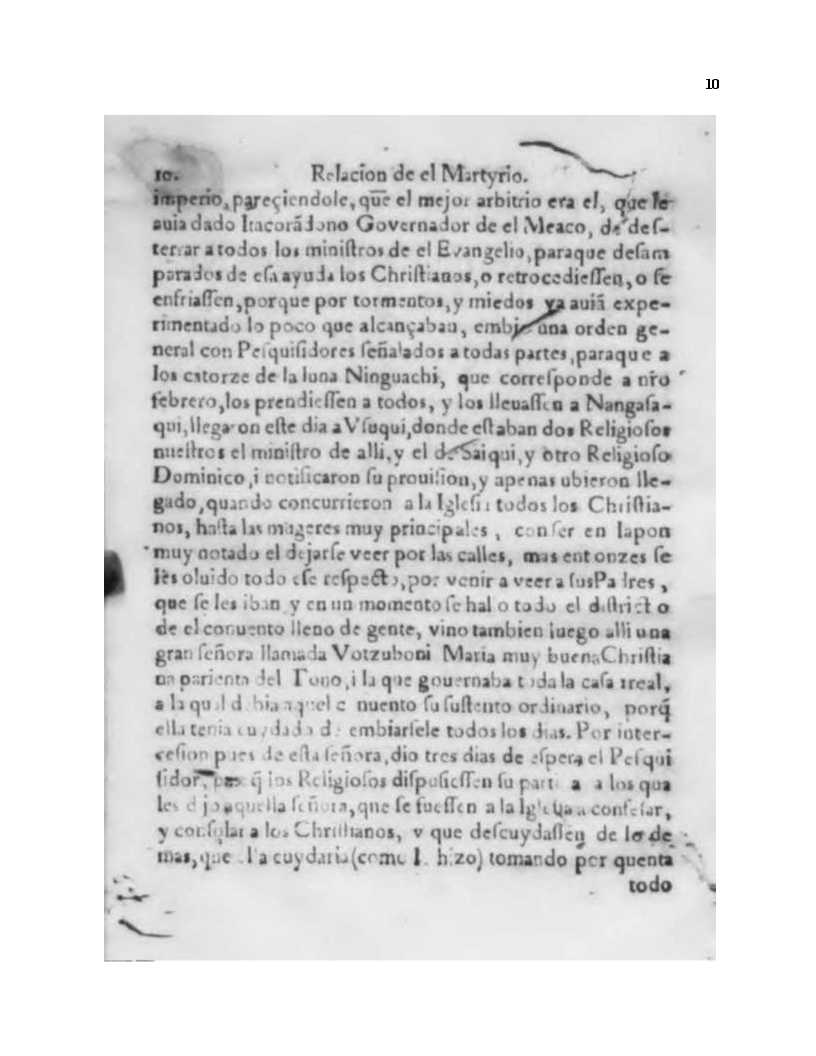 10
10. Relacion de el Martyrio.
imperio, pareçiendole, que el mejor arbitrio era el, que le
auia dado Itacorãdono Governador de el Meaco, de deſ-
terrar a todos los miniſtros de el Evangelio, paraque deſam
parados de eſa ayuda los Chriſtianos, o retrocedieſſen, o ſe
enfriaſſen, porque por tormentos, y miedos ya auiã expe-
rimentado lo poco que alcançaban, embio una orden ge-
neral con Peſquiſidores ſeñalados a todas partes, paraque a
los catorze de la luna Ninguachi, que correſponde a nr̃o
febrero, los prendieſſen a todos, y los lleuaſſen a Nangaſa-
qui, llegaron eſte dia a Vſuqui, donde eſtaban dos Religioſos
nueſtros el miniſtro de alli, y el de Saiqui, y otro Religioſo
Dominico, i notificaron ſu prouiſion, y apenas ubieron lle-
gado, quando concurrieron a la Igleſia todos los Chriſtia-
nos, haſta las mugeres muy principales, con ſer en Iapon
muy notado el dejarſe veer por las calles, mas entonzes ſe
les oluido todo eſe reſpecto, por venir a veer a ſus Padres,
que ſe les iban y en un momento ſe hallo todo el diſtricto
de el conuento lleno de gente, vino tambien luego alli una
gran ſeñora llamada Votzuboni Maria muy buena Chriſtia
na parienta del Tono, i la que gouernaba toda la caſa rreal,
a la qual debia aquel conuento ſu ſuſtento ordinario, porq̃
ella tenia cuydado de embiarſele todos los dias. Por inter-
ceſion pues de eſta ſeñora, dio tres dias de eſpera el Peſqui
ſidor, para q̃ los Religioſos diſpuſieſſen ſu partida a los qua
les dijo aquella ſeñora, que ſe fueſſen a la Igleſia a confeſar,
y conſolar a los Chriſtianos, y que deſcuydaſſen de lo de
mas, que ella cuydaria (como lo hizo) tomando por quenta
todo